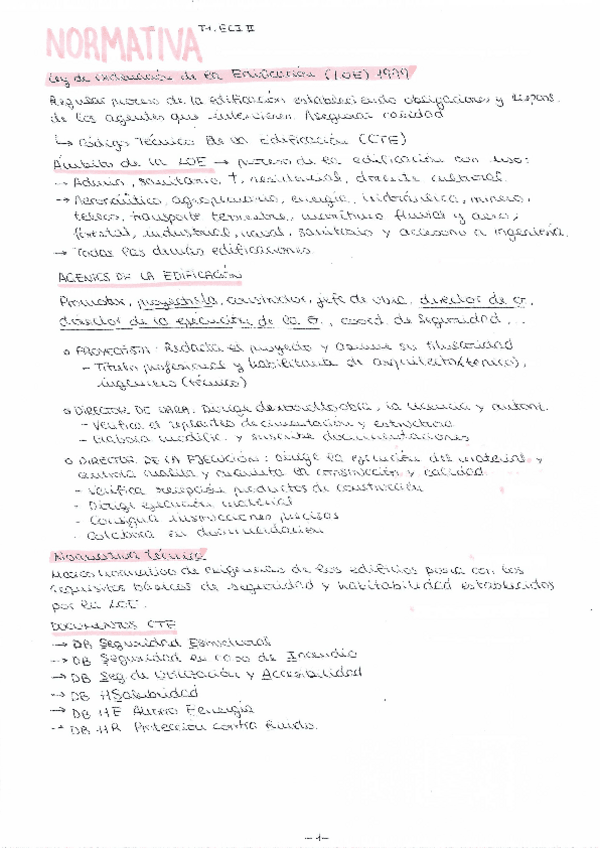 T1. ECI II
NORMATIVA
Ley de ordenación de la Edificación (LOE) 1999
Regular proceso de la edificación estableciendo obligaciones y respons.
de los agentes que intervienen. Asegurar calidad
↳ Código Técnico de la Edificación (CTE)
Ámbitos de la LOE → proceso de la edificación con uso:
→ Admin, sanitario, †, residencial, docente cultural.
→ Aeronáutico, agropecuario, energía, hidráulica, minero,
teleco, transporte terrestre, marítimo fluvial y aéreo,
forestal, industrial, naval, sanitario y accesorio a ingeniería.
→ Todas las demás edificaciones.
AGENTES DE LA EDIFICACIÓN
Promotor, proyectista, constructor, jefe de obra, director de σ,
director de la ejecución de la σ, coord. de seguridad, ...
• PROYECTISTA: Redacta el proyecto y asume su titularidad
- Título profesional y habilitante de arquitecto (técnico),
ingeniero (técnico)
• DIRECTOR DE OBRA: Dirige desarrollo obra, la licencia y autori.
- Verifica el replanteo de cimentación y estructura
- Elabora modific. y suscribe documentaciones
• DIRECTOR DE LA EJECUCIÓN: Dirige la ejecución del material y
controla cualita y cuantita la construcción y calidad
- Verifica recepción productos de construcción
- Dirige ejecución material
- Consigna instrucciones precisas
- Colabora en documentación
Normativa técnica
Marco normativo de exigencias de los edificios para con los
requisitos básicos de seguridad y habitabilidad establecidos
por la LOE.
DOCUMENTOS CTE
→ DB Seguridad Estructural
→ DB Seguridad en caso de Incendio
→ DB Seg de Utilización y Accesibilidad
→ DB HSalubridad
→ DB HE Ahorro Eenergía
→ DB HR Protección contra Ruido.
-1-